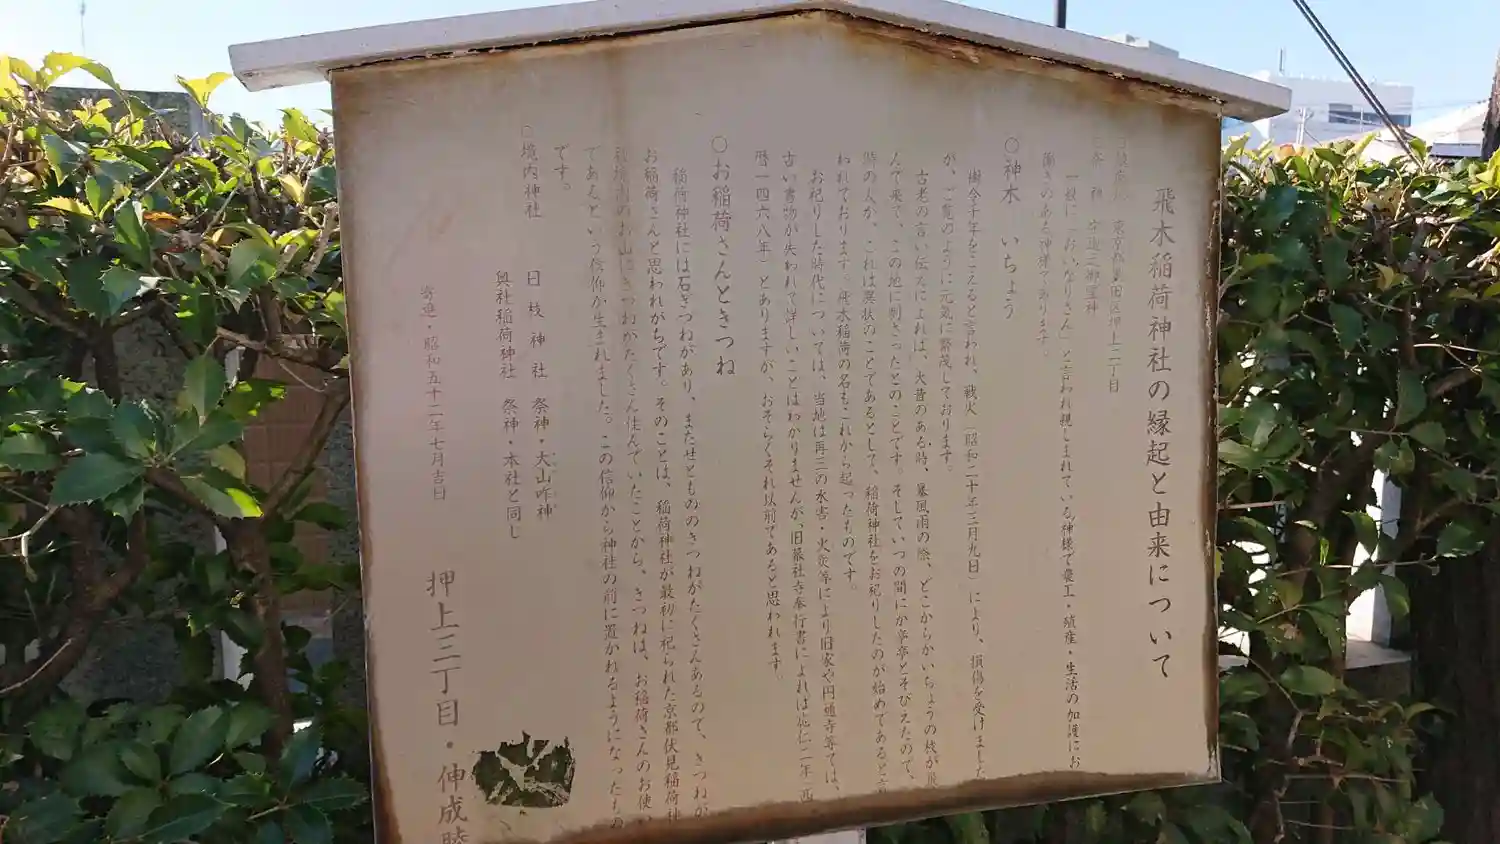 飛木稲荷神社の縁起と由来について
東京都墨田区押上二丁目
祭 神 宇迦之御霊神
一般に「おいなりさん」と言われ親しまれている神様で農工・殖産・生活の加護にお
働きのある神様であります。
〇神木 いちょう
樹令千年をこえると言われ、戦火(昭和二十年三月九日)により、損傷を受けました
が、ご覧のように元気に繁茂しております。
古老の言い伝えによれば、大昔のある時、暴風雨の際、どこからかいちょうの枝が飛
んで来て、この地に刺さったとのことです。そしていつの間にか亭亭とそびえたので、
時の人が、これは異状のことであるとして、稲荷神社をお祀りしたのが始めであると
われております。飛木稲荷の名もこれから起ったものです。
お祀りした時代については、当地は再三の水害・火災等により旧家や円通寺等では、
古い書物が失われて詳しいことはわかりませんが、旧幕社寺奉行書によれば応仁二年(西
暦一四六八年)とありますが、おそらくそれ以前であると思われます。
〇お稲荷さんときつね
稲荷神社には石ぎつねがあり、またせともののきつねがたくさんあるので、きつねが
お稲荷さんと思われがちです。そのことは、稲荷神社が最初に祀られた京都伏見稲荷神
社境内のお山にきつねがたくさん住んでいたことから、きつねは、お稲荷さんのお使い
であるという信仰が生まれました。この信仰から神社の前に置かれるようになったもの
です。
〇境内神社 日枝神社 祭神・大山咋神
奥社稲荷神社 祭神・本社と同じ
寄進・昭和五十二年七月吉日
押上三丁目・伸成睦